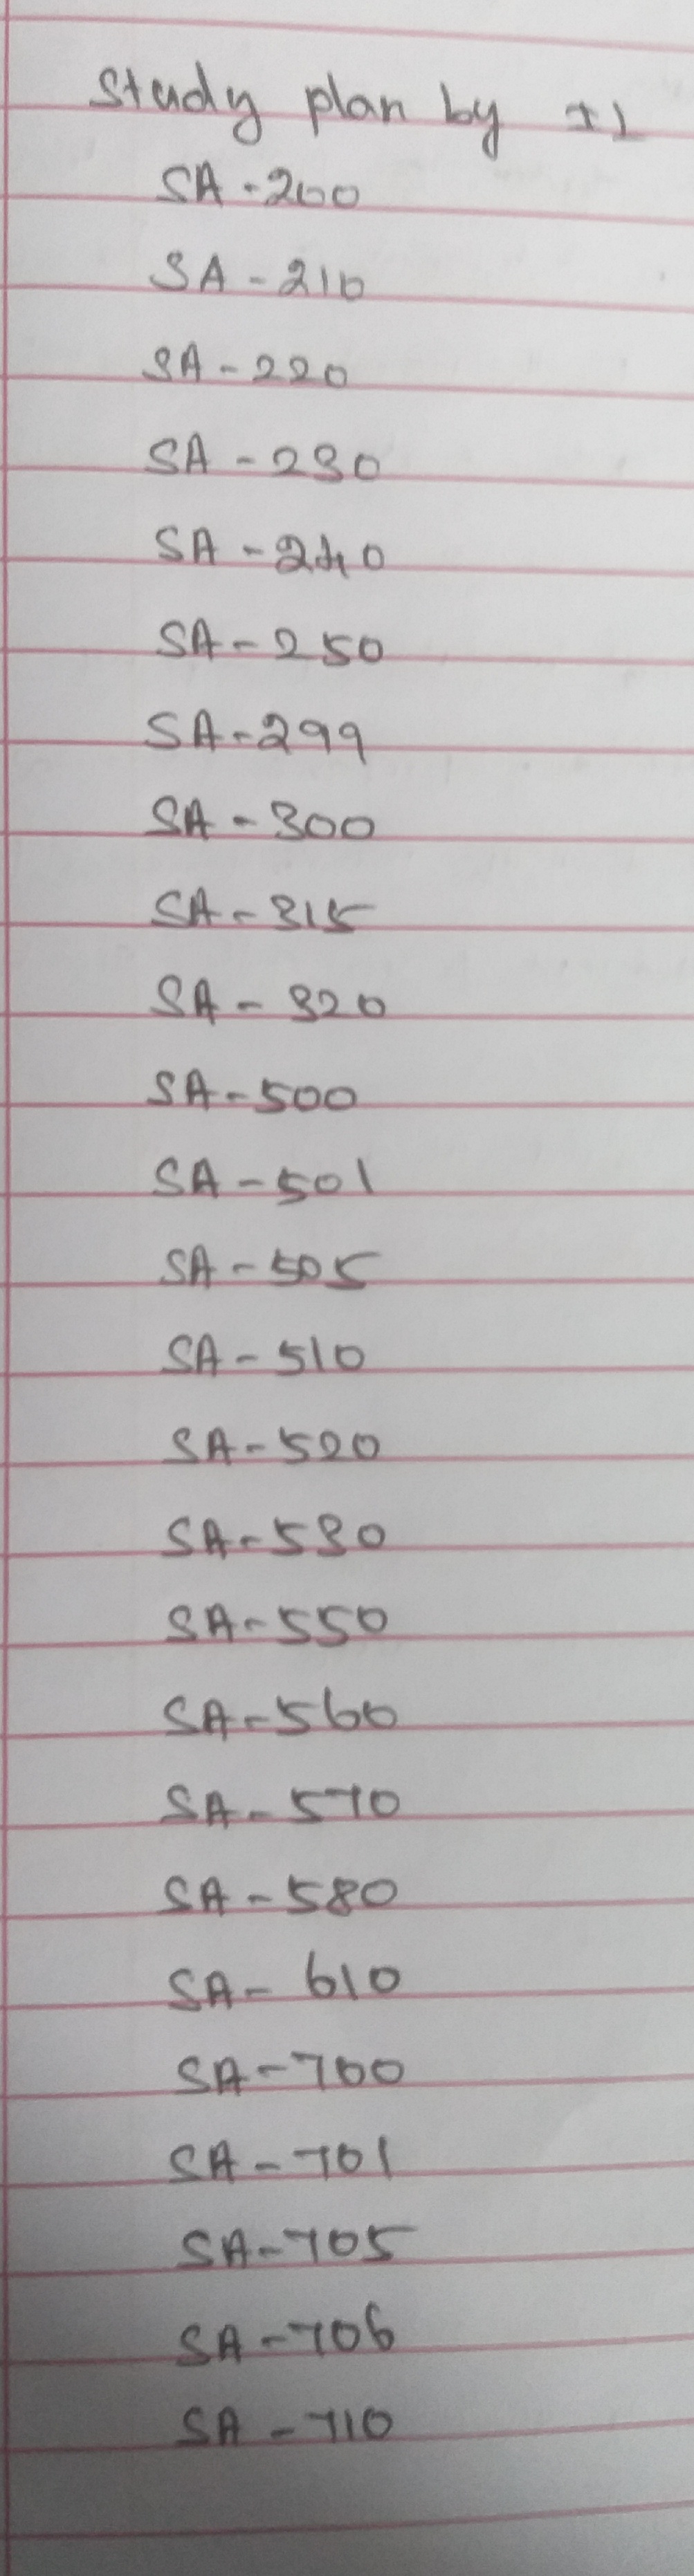 Study plan by
SA-200
SA-210
SA-220
SA-230
SA-240
SA-250
SA-299
SA-300
SA-315
SA-320
SA-500
SA-501
SA-505
SA-510
SA-520
SA-530
SA-550
SA-560
SA-570
SA-580
SA-610
SA-700
SA-701
SA-705
SA-706
SA-710